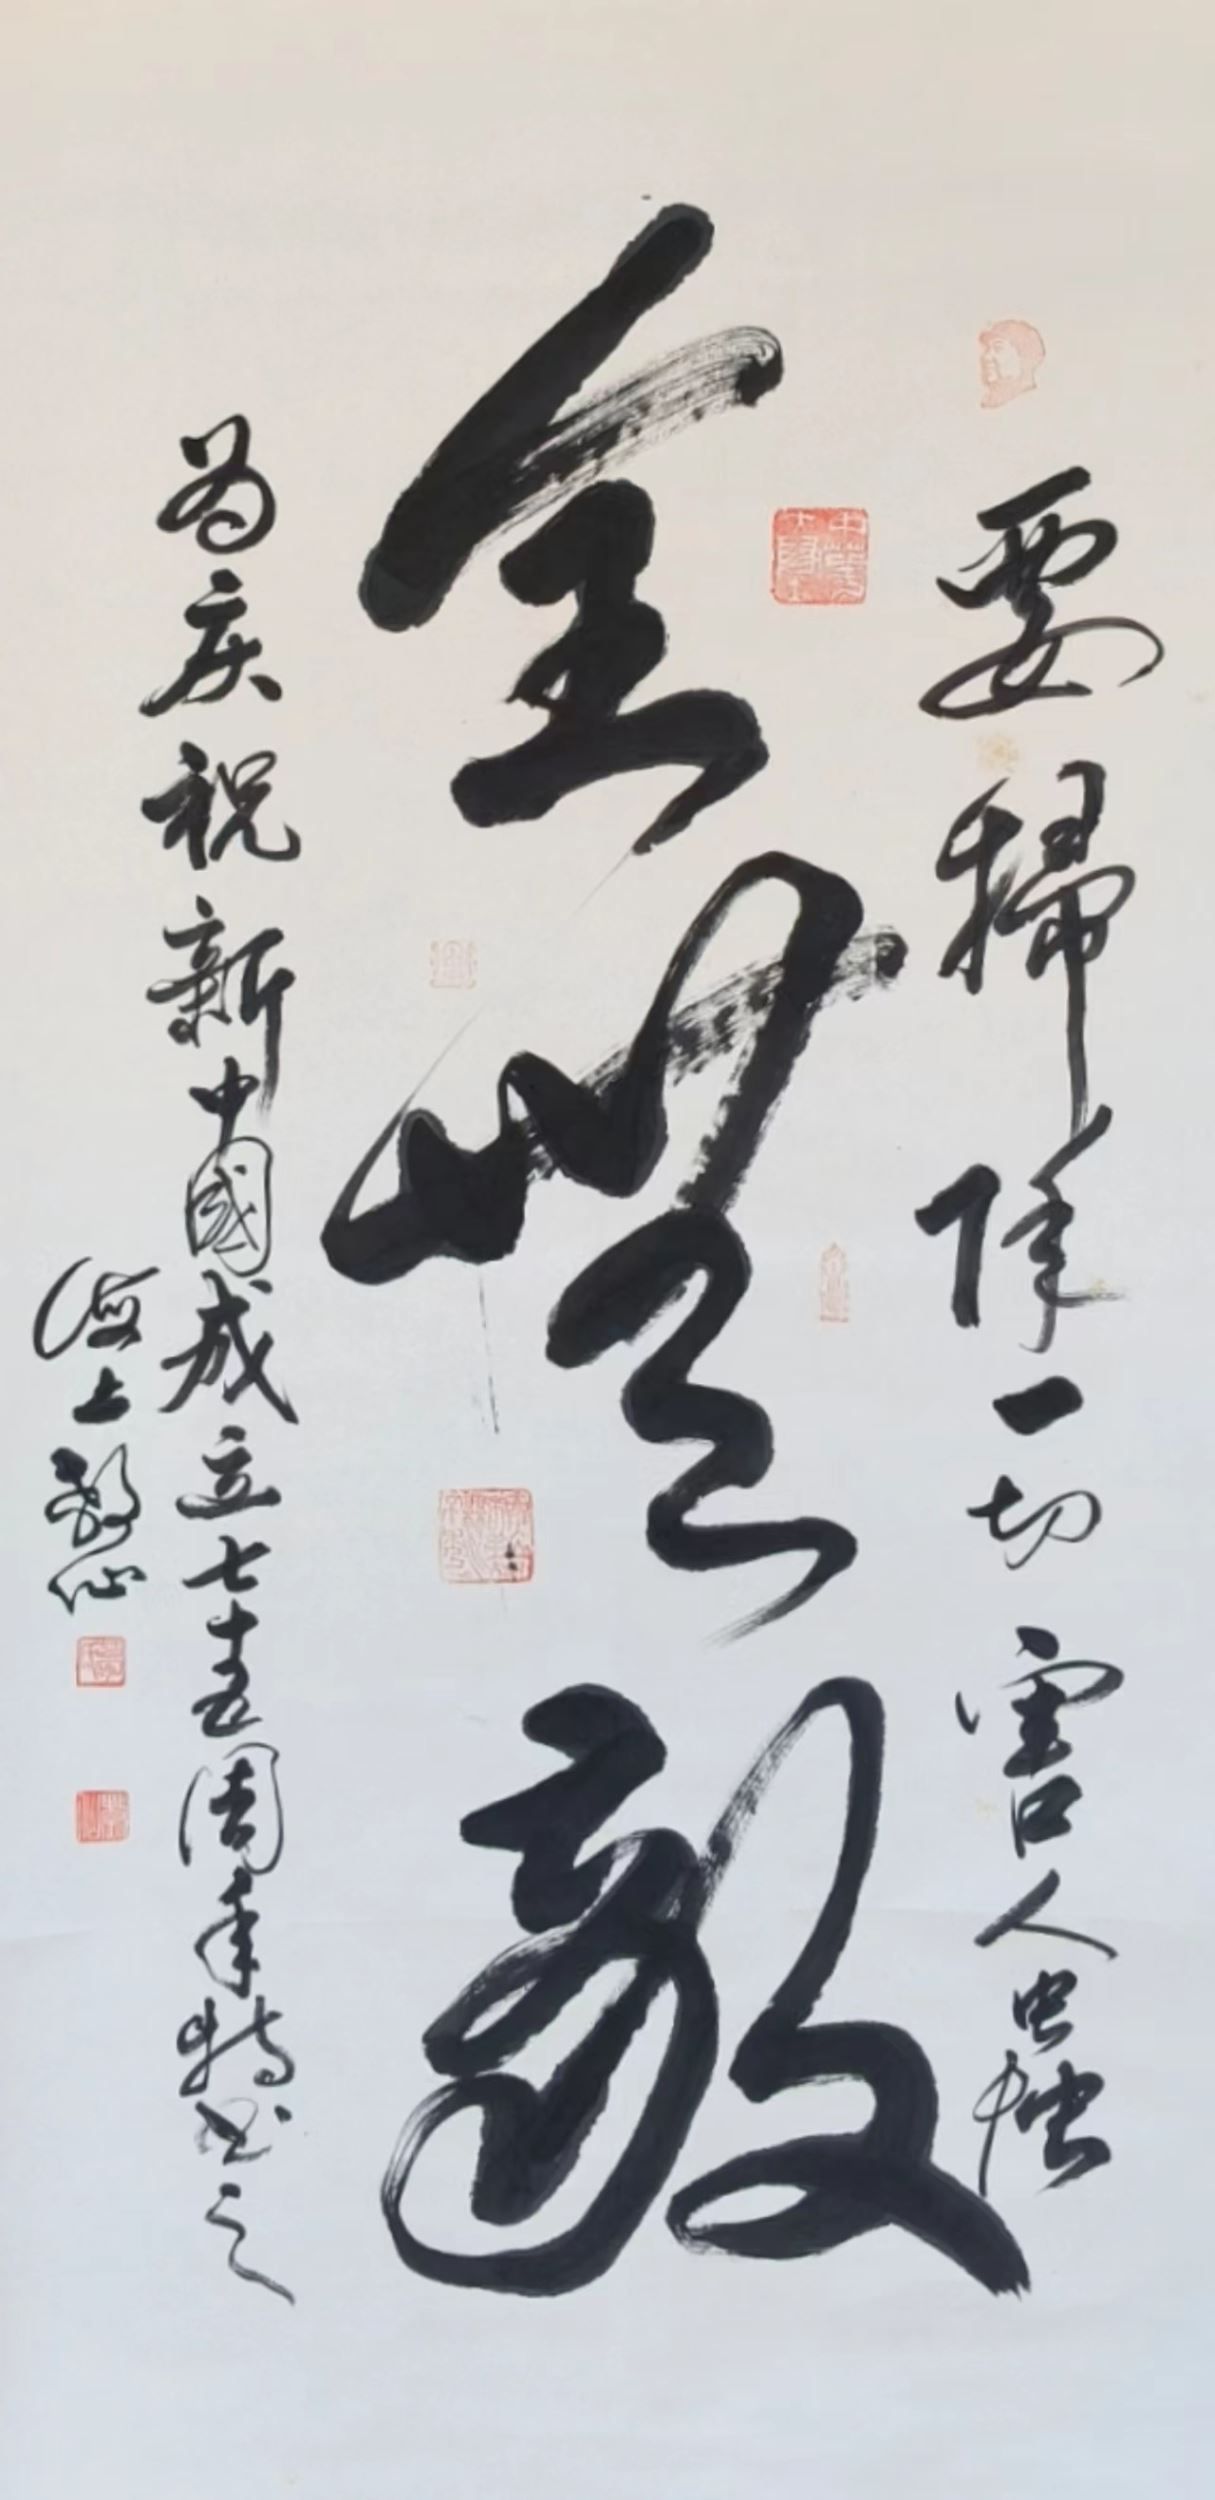 要掃除一切害人虫
全無敵
為庆祝新中國成立七十五周年特书之
海上